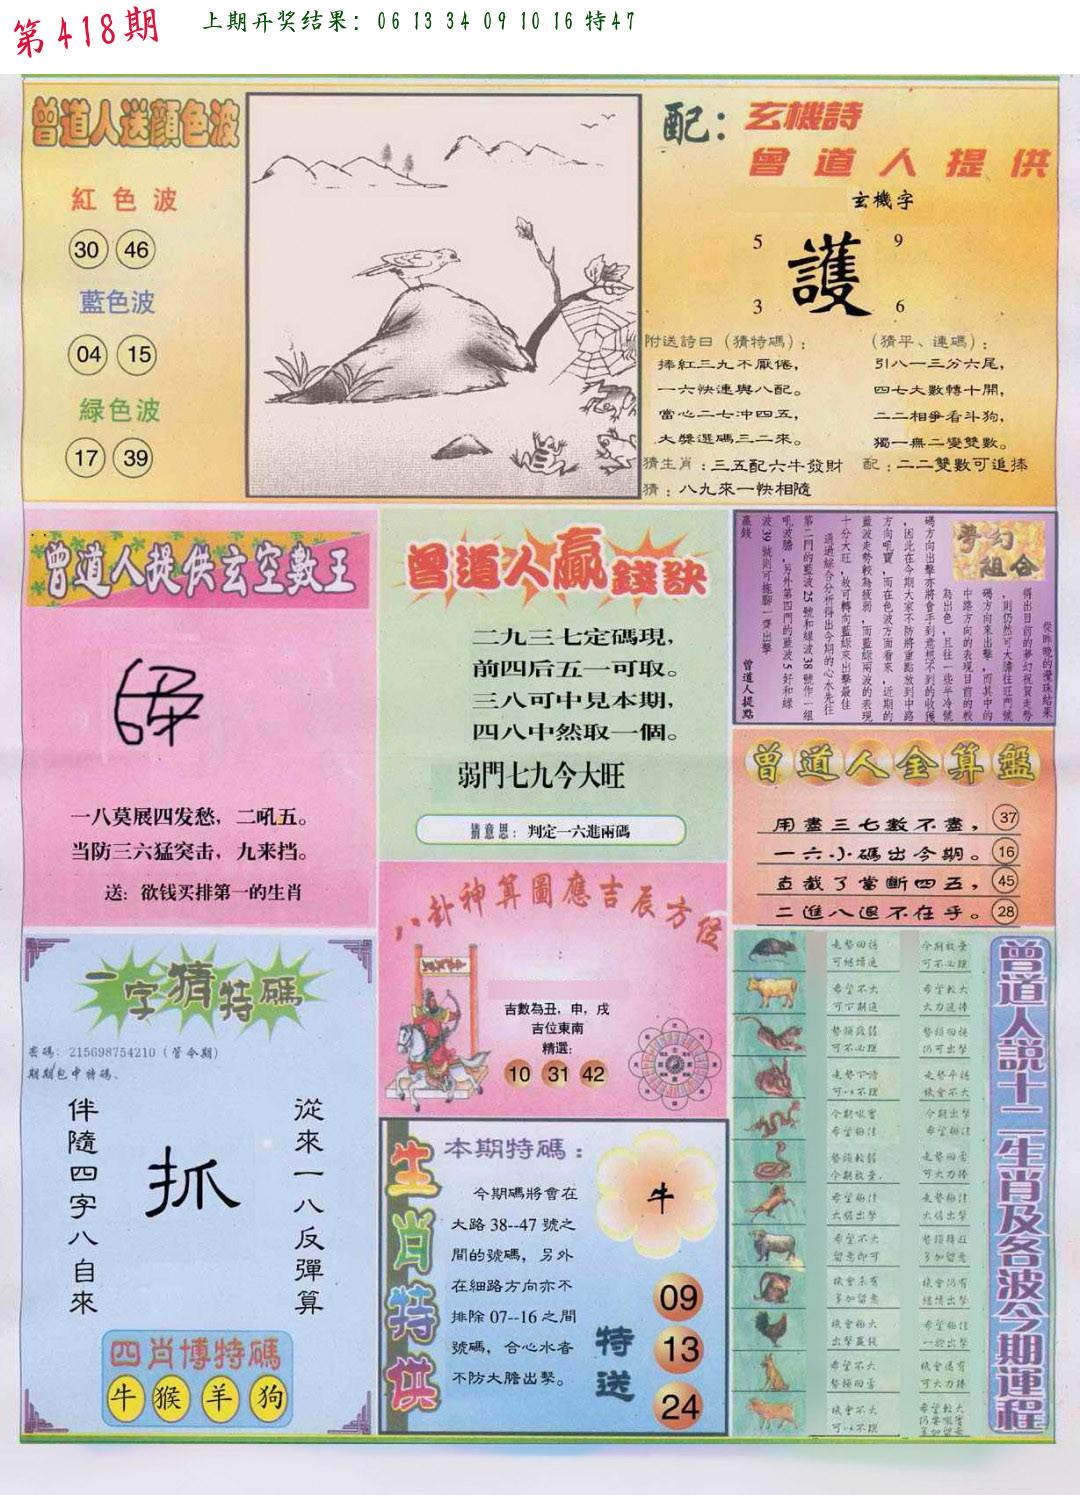 第418期
上期开奖结果：06 13 34 09 10 16 特47
曾道人送顏色波
紅色波
30 46
藍色波
04 15
緑色波
17 39
配：玄機詩
曾道人提供
玄機字
5 9
護
3 6
附送詩曰（猜特碼）：
捧紅三九不厭倦，
一六快連與八配。
當心二七冲四五，
大獎選碼三二來。
（猜平、連碼）：
引八一三分六尾，
四七大數轉十開，
二二相爭看斗狗，
獨一無二變雙數。
猜生肖：三五配六牛發財
配：二二雙數可追捧
猜：八九來一快相隨
曾道人提供玄空數王
一八莫展四发愁，二吼五。
当防三六猛突击，九来挡。
送：欲钱买排第一的生肖
曾道人贏錢訣
二九三七定碼現，
前四后五一可取。
三八可中見本期，
四八中然取一個。
弱門七九今大旺
猜意思：判定一六進兩碼
夢幻組合
從昨晚的攪珠結果
得出目前的夢幻祝賀走勢
，則仍然可大膽往旺門號
碼方向來出擊，而其中的
中路方向的表現目前的較
為出色，且往一些半冷號
碼方向出擊亦將會手到意想不到的收獲
，因此在今期大家不防將重點放到中路
方向吼寶，而在色波方面看來，近期的
藍波走勢較為疲弱，而藍綠兩波的表現
十分大旺，故可轉向藍綠來出擊最佳
通過綜合分析得出今期的心水先往
第二門的藍波25號和綠波38號作一組
吼波膽，另外第四門的藍波5好和綠
波39號則可拖腳一齊出擊
贏錢
曾道人提點
曾道人金算盤
用盡三七數不盡，37
一六小碼出今期。16
直截了當斷四五，45
二進八退不在乎。28
八卦神算圖應吉辰方位
吉數為丑，申，戌
吉位東南
精選：
10 31 42
一字猜特碼
密碼：215698754210（管令期）
期期包中特碼。
從來一八反彈算
抓
伴隨四字八自來
四肖博特碼
牛 猴 羊 狗
生肖特供
本期特碼：
今期碼將會在
大路38--47號之
間的號碼，另外
在細路方向亦不
排除07--16之間
號碼，合心水者
不防大膽出擊。
牛
特送
09
13
24
曾道人説十二生肖及各波今期運程
走勢回揚
可繼續追
希望不大
可下期追
希望較大
大力追捧
今期出擊
希望極佳
希望不大
留意即可
機會不大
出擊贏錢
機會不大
可以不理